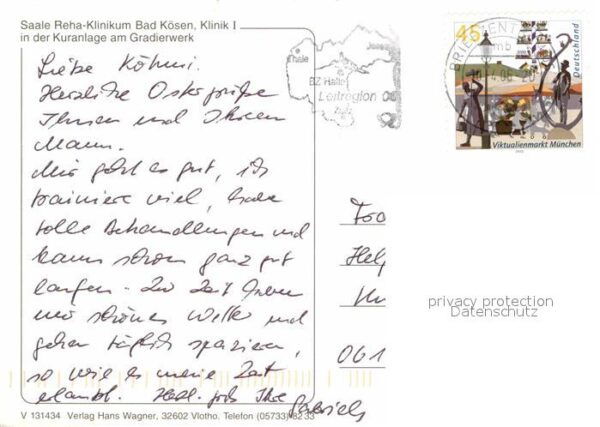 Saale Reha-Klinikum Bad Kösen, Klinik I
in der Kuranlage am Gradierwerk
Liebe
Herzliche Ostergrüße
Ihnen und Ihrem
Mann.
Mir geht es gut, ich
trainiere viel, habe
tolle Behandlungen und
kann schon ganz gut
laufen. Zur Zeit haben
wir schönes Wetter und
gehen täglich spazieren,
so wie es meine Zeit
erlaubt. Herzl. Ihre
Gabriele
V 131434 Verlag Hans Wagner, 32602 Vlotho. Telefon (05733) 82 33
Thale
Jena
BZ Halle
Leitregion
06
Zeitz
BRIEFZENT
mb
45
Deutschland
Viktualienmarkt München
Hel
061
privacy protection
Datenschutz